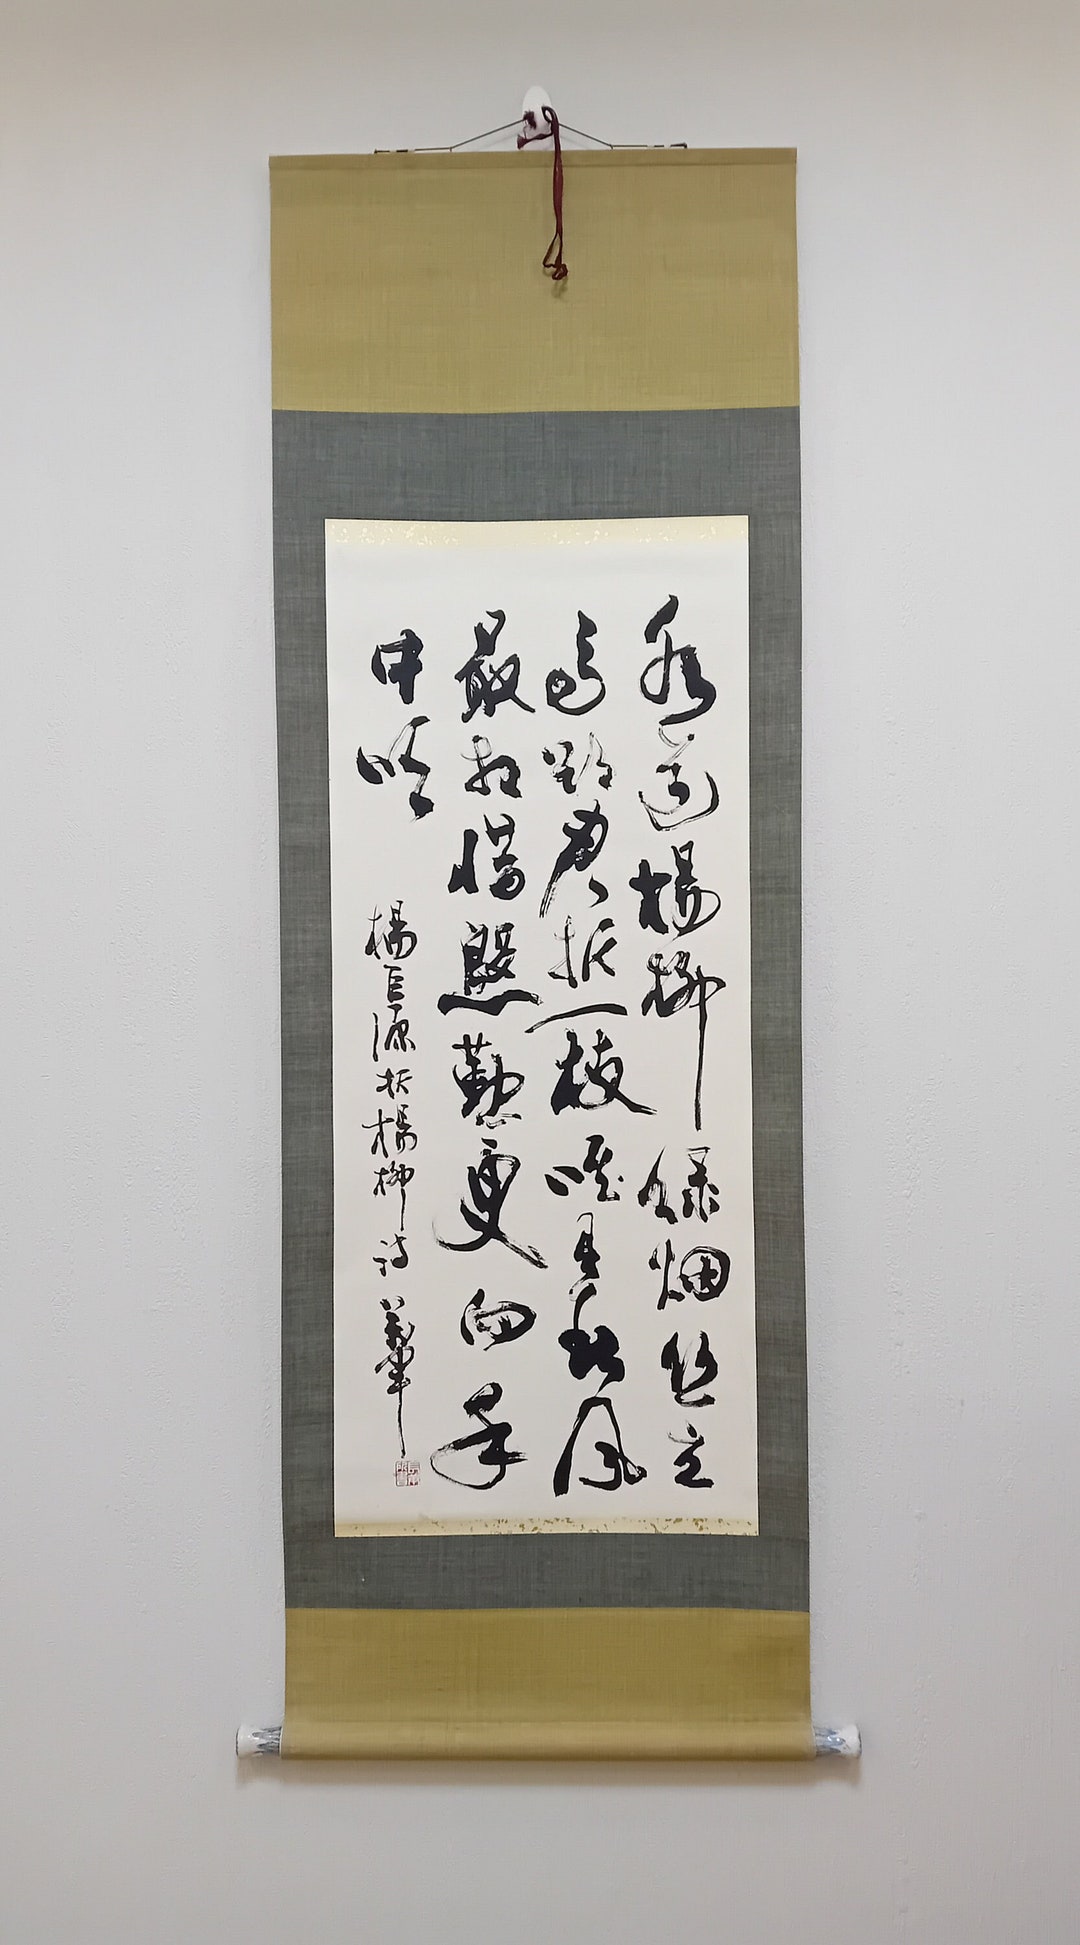 水邊楊柳緑烟丝立
馬煩君折一枝唯有春風
最相惜慇懃更向手
中吹
楊巨源折楊柳詩